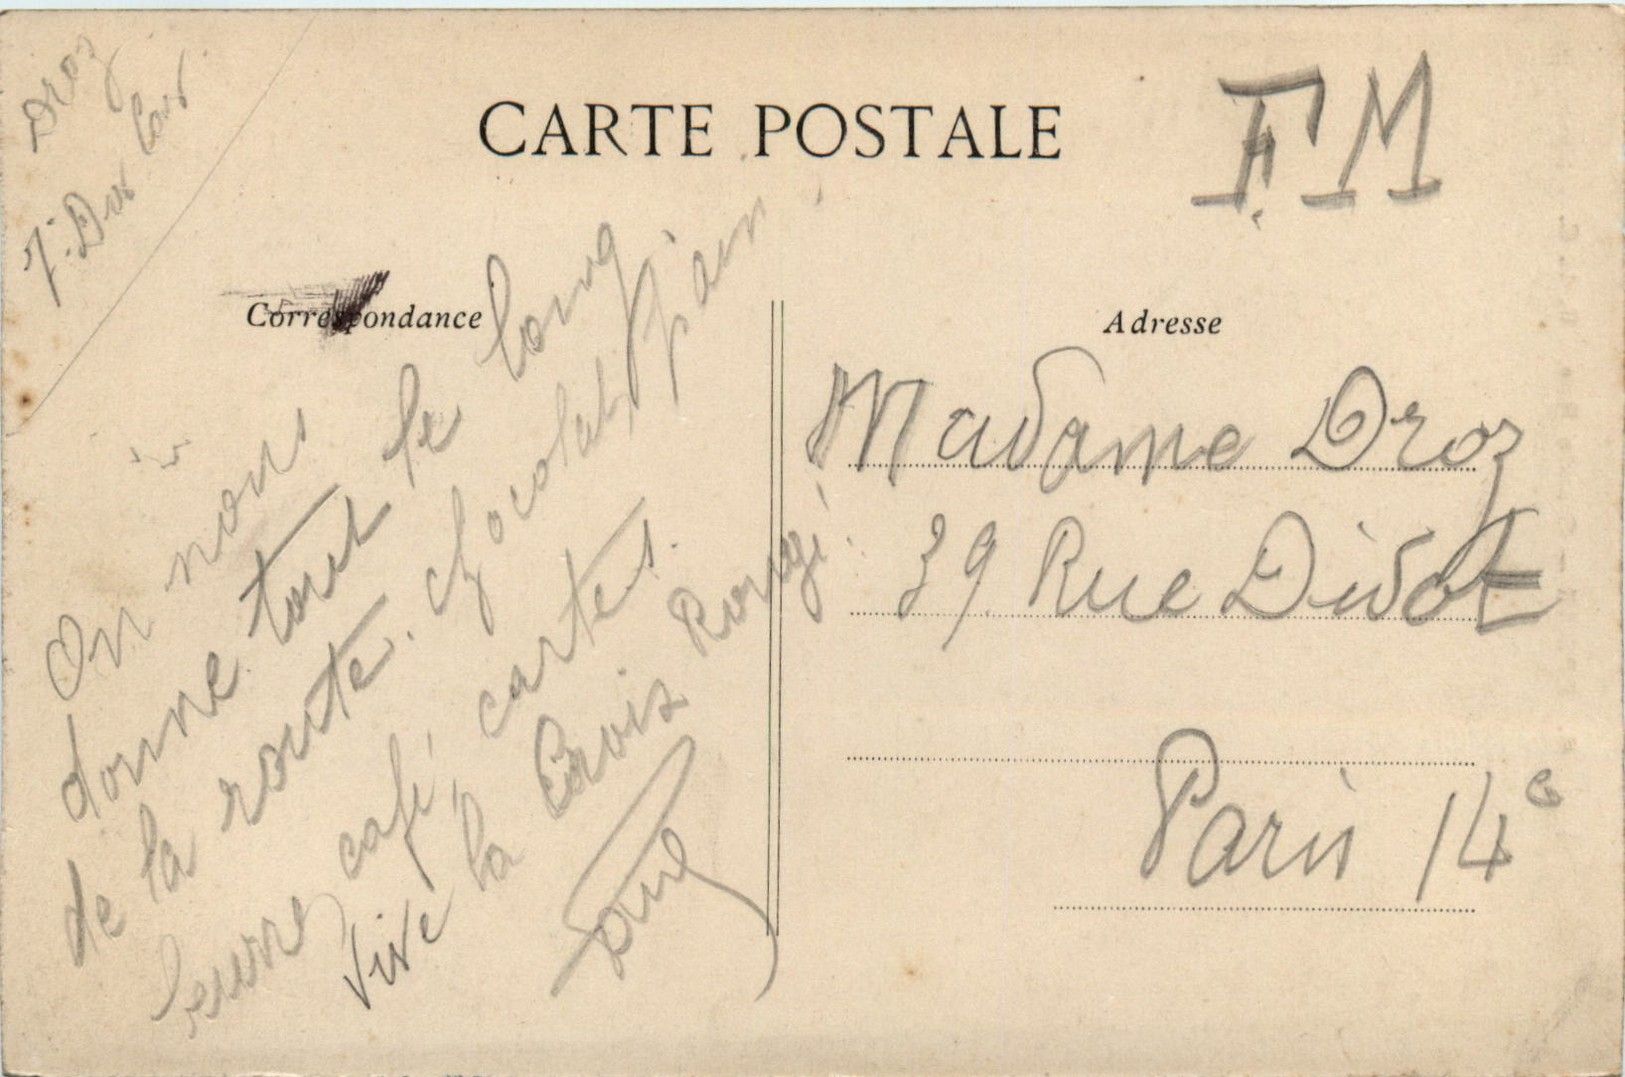 CARTE POSTALE
F.M
Droz
Correspondance
On nous
donne tout le long
de la route. chocolat, pain
beurre café, cartes.
Vive la Croix Rouge!
Adresse
Madame Droz
39 Rue Didot
Paris 14e